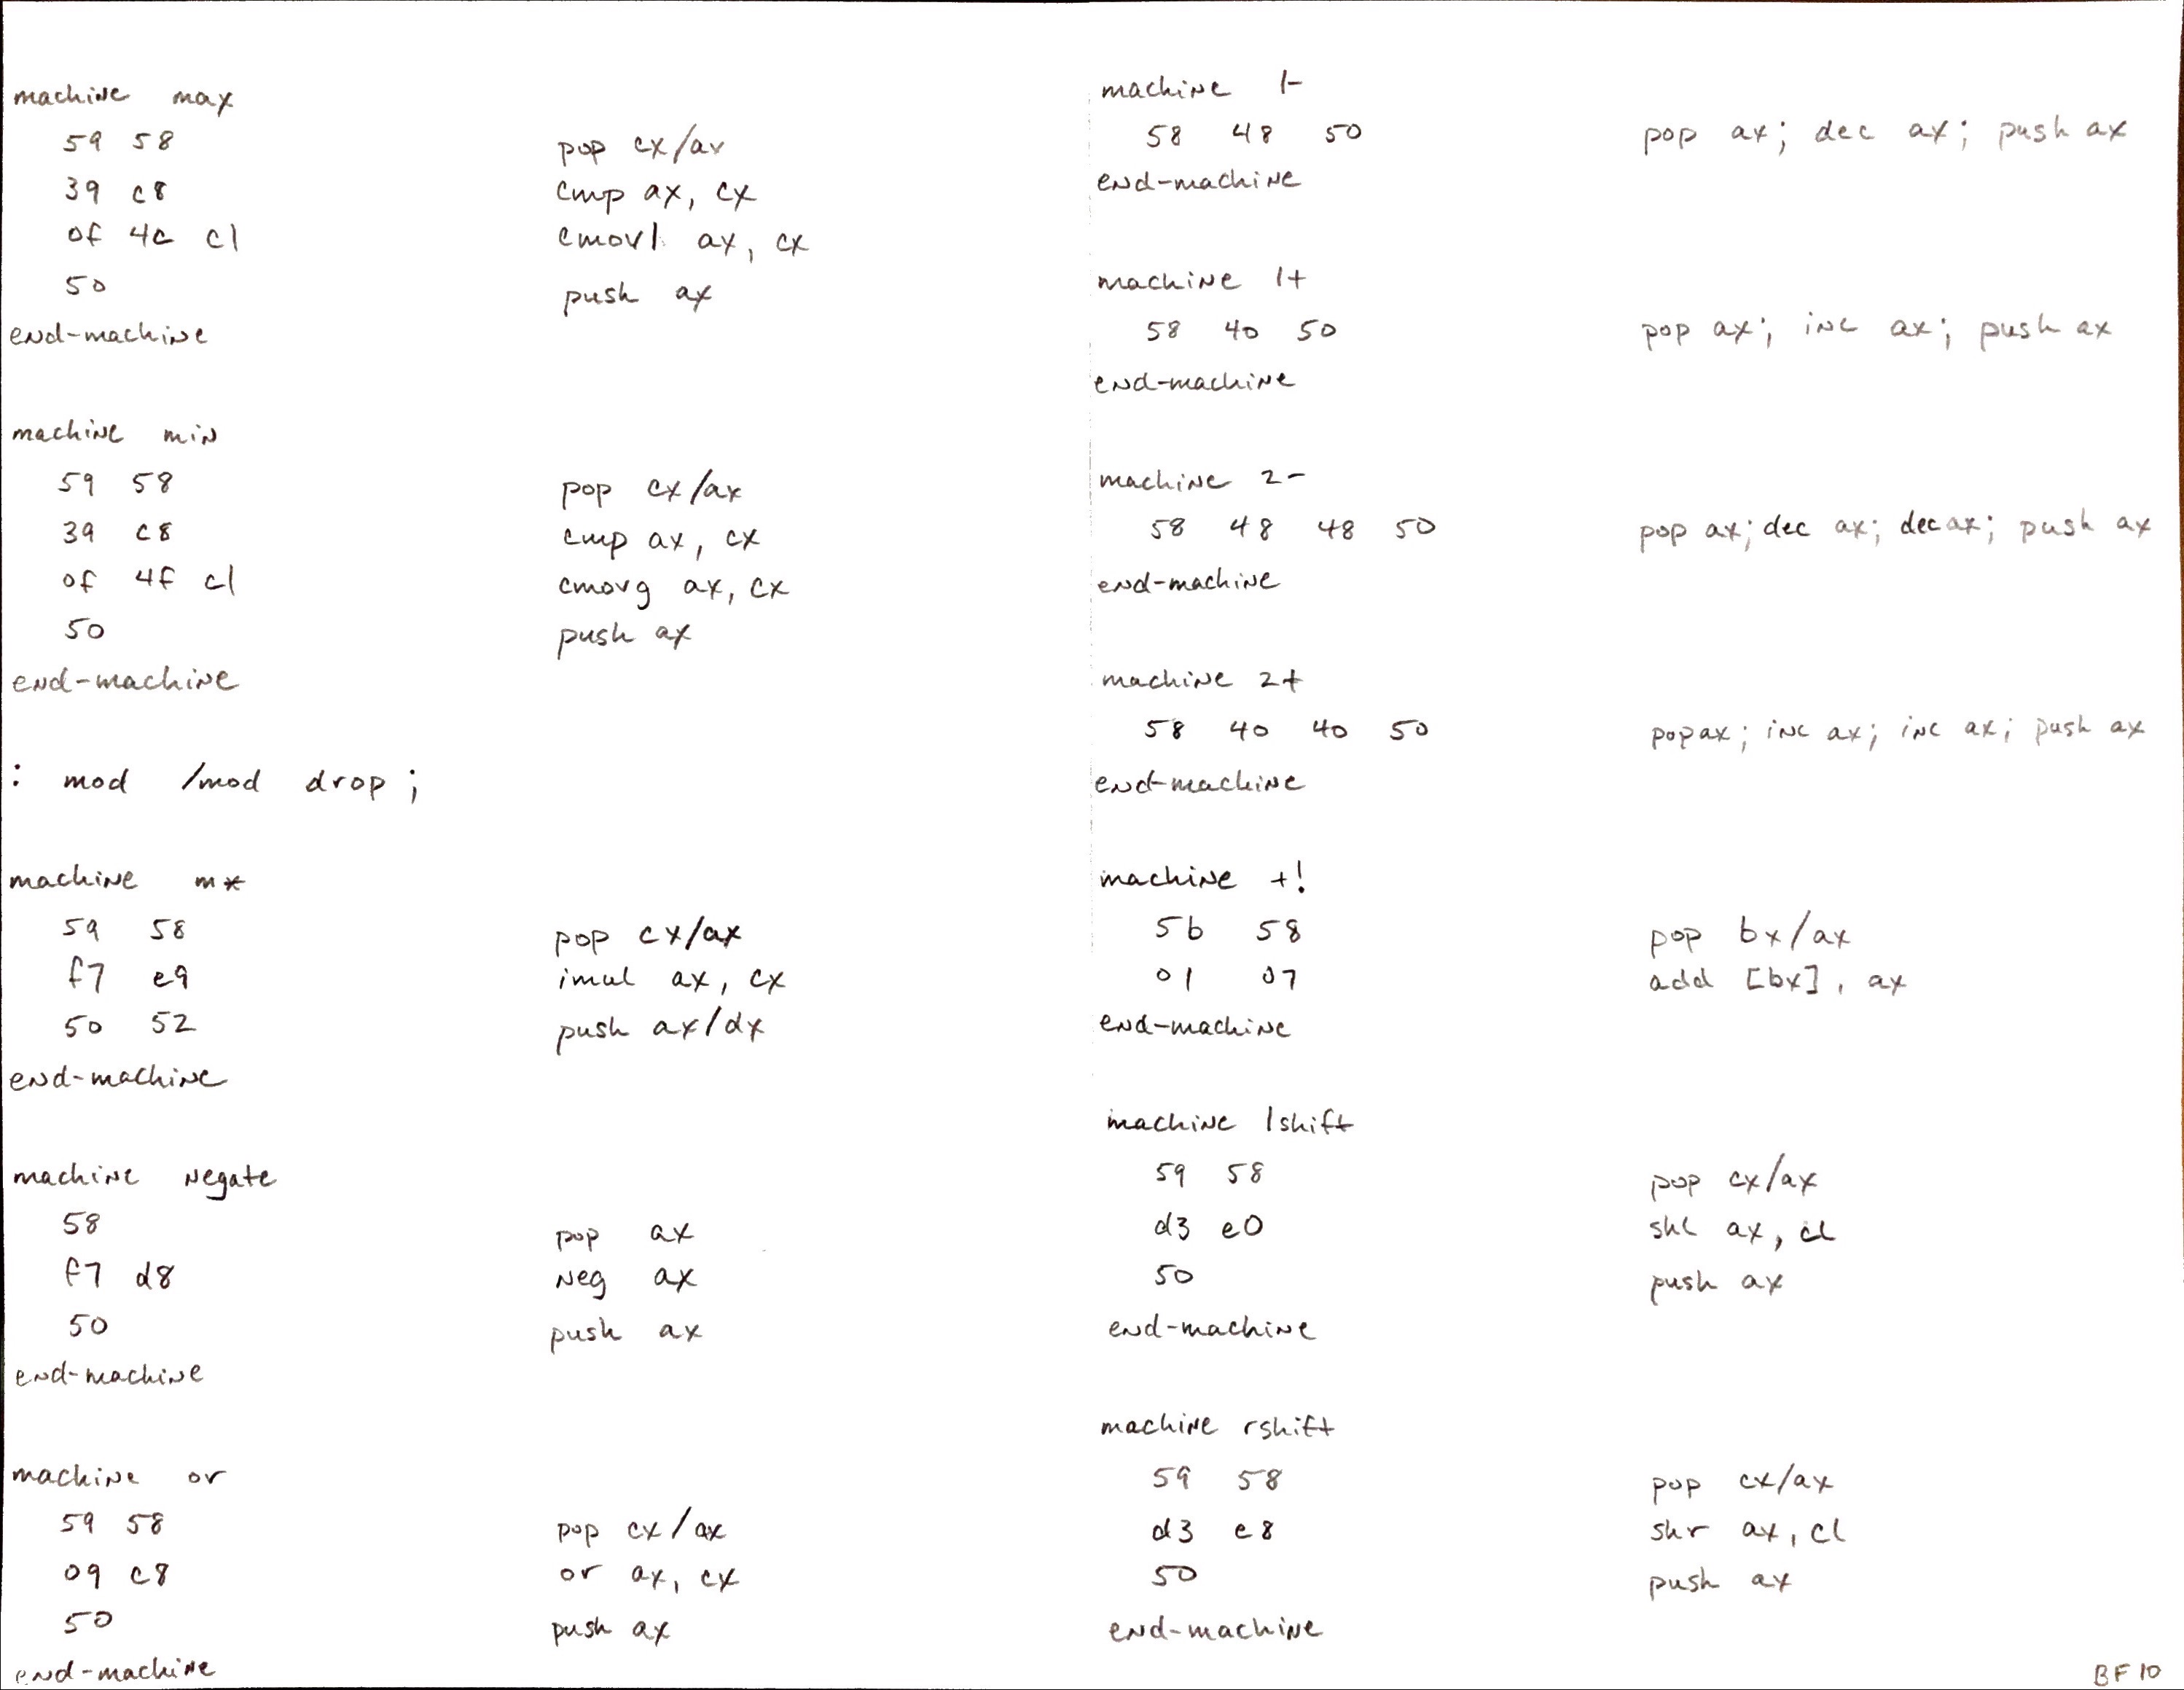 machine max
59 58 pop cx/ax
39 c8 cmp ax, cx
0f 4c c1 cmovl ax, cx
50 push ax
end-machine
machine min
59 58 pop cx/ax
39 c8 cmp ax, cx
0f 4f c1 cmovg ax, cx
50 push ax
end-machine
: mod /mod drop ;
machine m*
59 58 pop cx/ax
f7 e9 imul ax, cx
50 52 push ax/dx
end-machine
machine negate
58 pop ax
f7 d8 neg ax
50 push ax
end-machine
machine or
59 58 pop cx/ax
09 c8 or ax, cx
50 push ax
end-machine
machine 1-
58 48 50 pop ax; dec ax; push ax
end-machine
machine 1+
58 40 50 pop ax; inc ax; push ax
end-machine
machine 2-
58 48 48 50 pop ax; dec ax; dec ax; push ax
end-machine
machine 2+
58 40 40 50 pop ax; inc ax; inc ax; push ax
end-machine
machine +!
5b 58 pop bx/ax
01 07 add [bx], ax
end-machine
machine lshift
59 58 pop cx/ax
d3 e0 shl ax, cl
50 push ax
end-machine
machine rshift
59 58 pop cx/ax
d3 e8 shr ax, cl
50 push ax
end-machine
BF 10